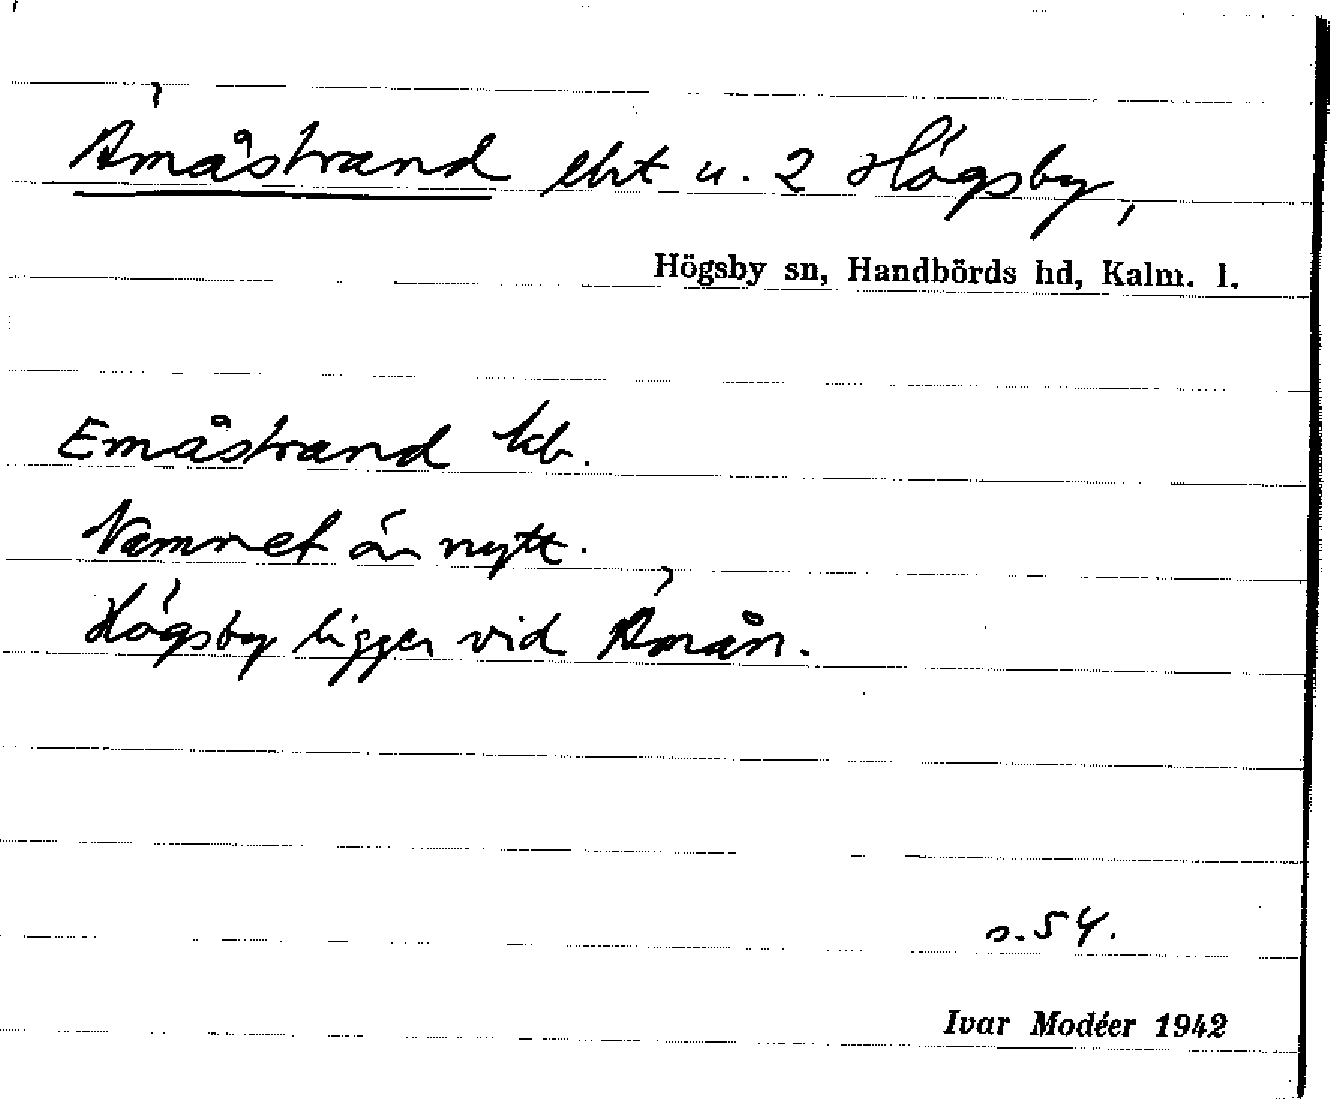 Ämåstrand lht u. 2 Högsby,
Högsby sn, Handbörds hd, Kalm. l.
Emåstrand kb.
Namnet är nytt.
Högsby ligger vid Ämån.
s. 54.
Ivar Modéer 1942